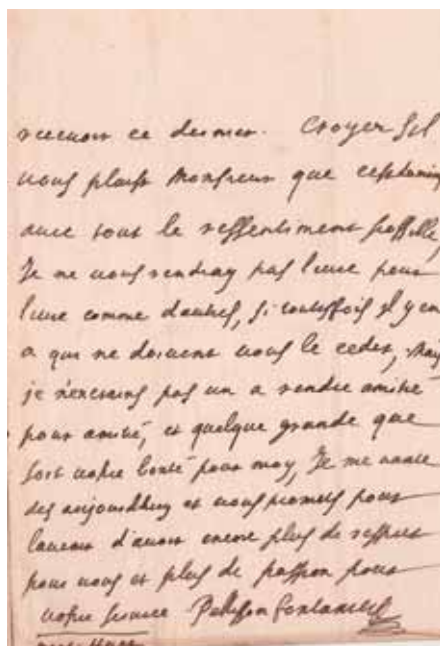 recevoir ce dernier. Croyez sil
vous plaist Monsieur que cest
avec tout le ressentiment possible,
Je ne vous rendray pas livre pour
livre comme d'autres, si toutesfois il y en
a qui ne doivent vous le ceder, Mais
je n'en crains pas un a rendre amitié
pour amitié, et quelque grande que
soit vostre bonté pour moy, Je me vante
des aujourdhuy et vous promets pour
lavenir d'avoir encore plus de respect
pour vous et plus de passion pour
vostre service Pellisson Fontanier